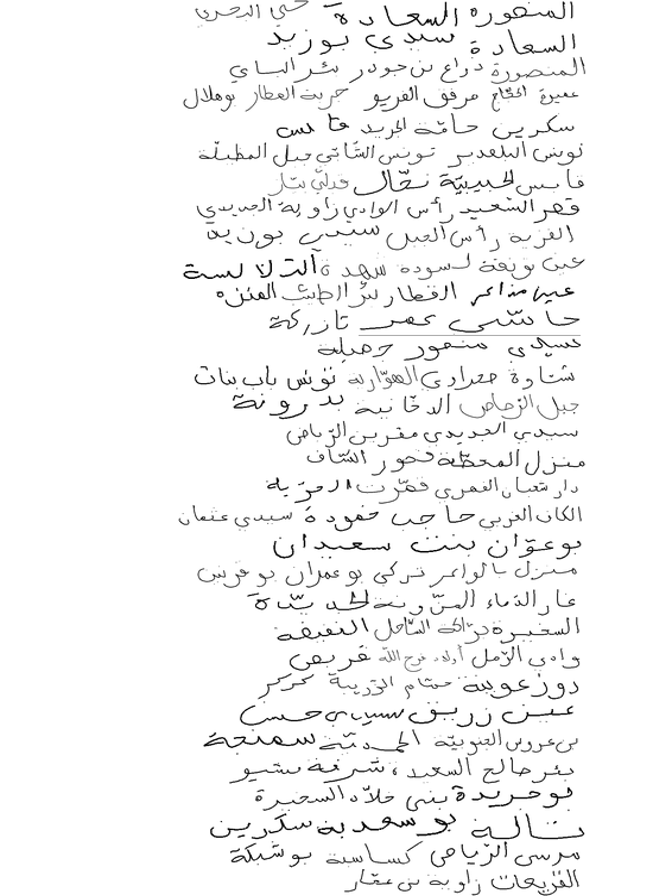 المنصورة السعادة حي البحري
السعادة سيدي بوزيد
المنصورة ذراع بن جودر بئر الباي
عميرة الحجاج مرفق الفريو خربة العطار بوهلال
سكرين حامة الجريد قابس
تونس البلفدير تونس الشابي جبل المظيلة
قابس الحبيبية نحّال
قصر السعيد رأس الوادي زاوية الجديدي
القرية رأس الجبل سيدي بوزيد
عين بونقة لسودة شهدة
عين مذاكر القطار بئر الطيب
حاسي عمر تازركة
سيدي منصور جميلة
شتاوة صحراوي الهوارية تونس باب بنات
جبل الرصاص الدخانية بدرونة
سيدي الجديدي مقرين الرياض
منزل المحطة فحور الساف
دار شعبان الفهري قمرت الرمزية
الكاف الغربي حاجب حفودة سيدي عثمان
بوعوان بنت سعيدان
منزل بالواعر تركي بوعمران بوقرنس
غار الدماء المنرونة الحديدة
السخيرة براكة الساحل النفيضة
وادي الرمل أولاد فرح الله قربص
دوز عوينة حمام الزريبة كركر
عين زريق سيدي حسن
بن عروس الجنوبية المحمدية سمنجة
بئر صالح السعيدة شرفة مشيو
بوجريدة بني خلاد السخيرة
تالة بوسعدية سكرين
مرسى الرياحي كساسبة بوشبكة
القريعات زاوية بن عمار